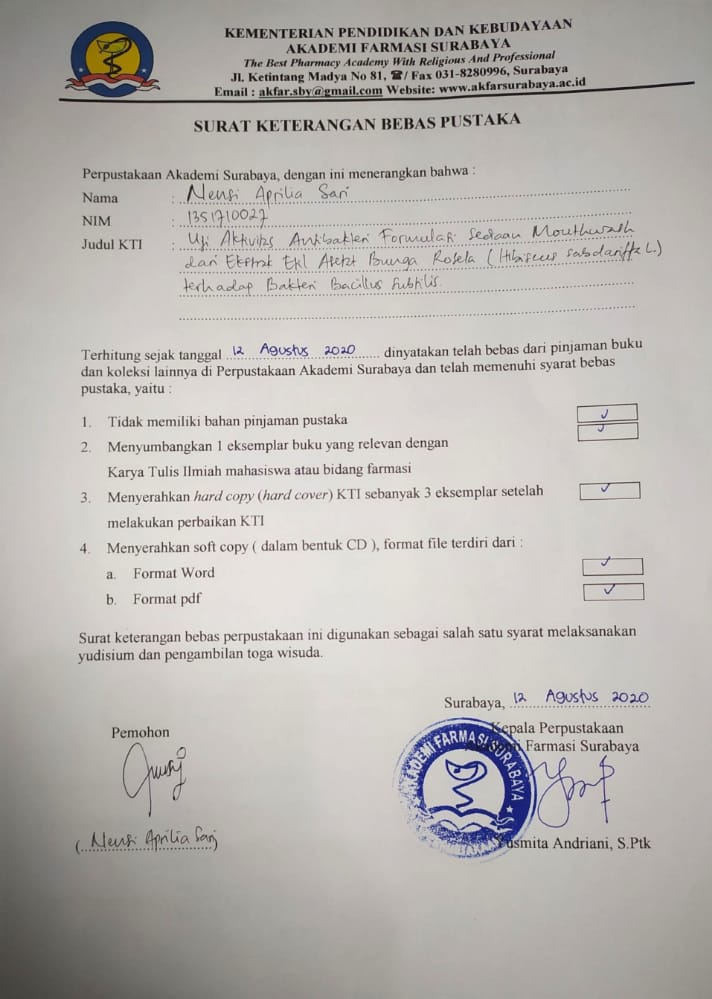 KEMENTERIAN PENDIDIKAN DAN KEBUDAYAAN
AKADEMI FARMASI SURABAYA
The Best Pharmacy Academy With Religious And Professional
Jl. Ketintang Madya No 81, ☎/ Fax 031-8280996, Surabaya
Email : akfar.sby@gmail.com Website: www.akfarsurabaya.ac.id
SURAT KETERANGAN BEBAS PUSTAKA
Perpustakaan Akademi Surabaya, dengan ini menerangkan bahwa :
Nama : Nensi Aprilia Sari
NIM : 1351710027
Judul KTI : Uji Aktivitas Antibakteri Formulasi Sediaan Mouthwash
dari Ekstrak Etil Asetat Bunga Rosela (Hibiscus sabdariffa L.)
terhadap Bakteri Bacillus Subtilis.
Terhitung sejak tanggal 12 Agustus 2020 dinyatakan telah bebas dari pinjaman buku
dan koleksi lainnya di Perpustakaan Akademi Surabaya dan telah memenuhi syarat bebas
pustaka, yaitu :
1. Tidak memiliki bahan pinjaman pustaka ✓
2. Menyumbangkan 1 eksemplar buku yang relevan dengan ✓
Karya Tulis Ilmiah mahasiswa atau bidang farmasi
3. Menyerahkan hard copy (hard cover) KTI sebanyak 3 eksemplar setelah ✓
melakukan perbaikan KTI
4. Menyerahkan soft copy ( dalam bentuk CD ), format file terdiri dari :
a. Format Word ✓
b. Format pdf ✓
Surat keterangan bebas perpustakaan ini digunakan sebagai salah satu syarat melaksanakan
yudisium dan pengambilan toga wisuda.
Surabaya, 12 Agustus 2020
Pemohon
Kepala Perpustakaan
Akademi Farmasi Surabaya
AKADEMI FARMASI SURABAYA
(Nensi Aprilia Sari
Yusmita Andriani, S.Ptk